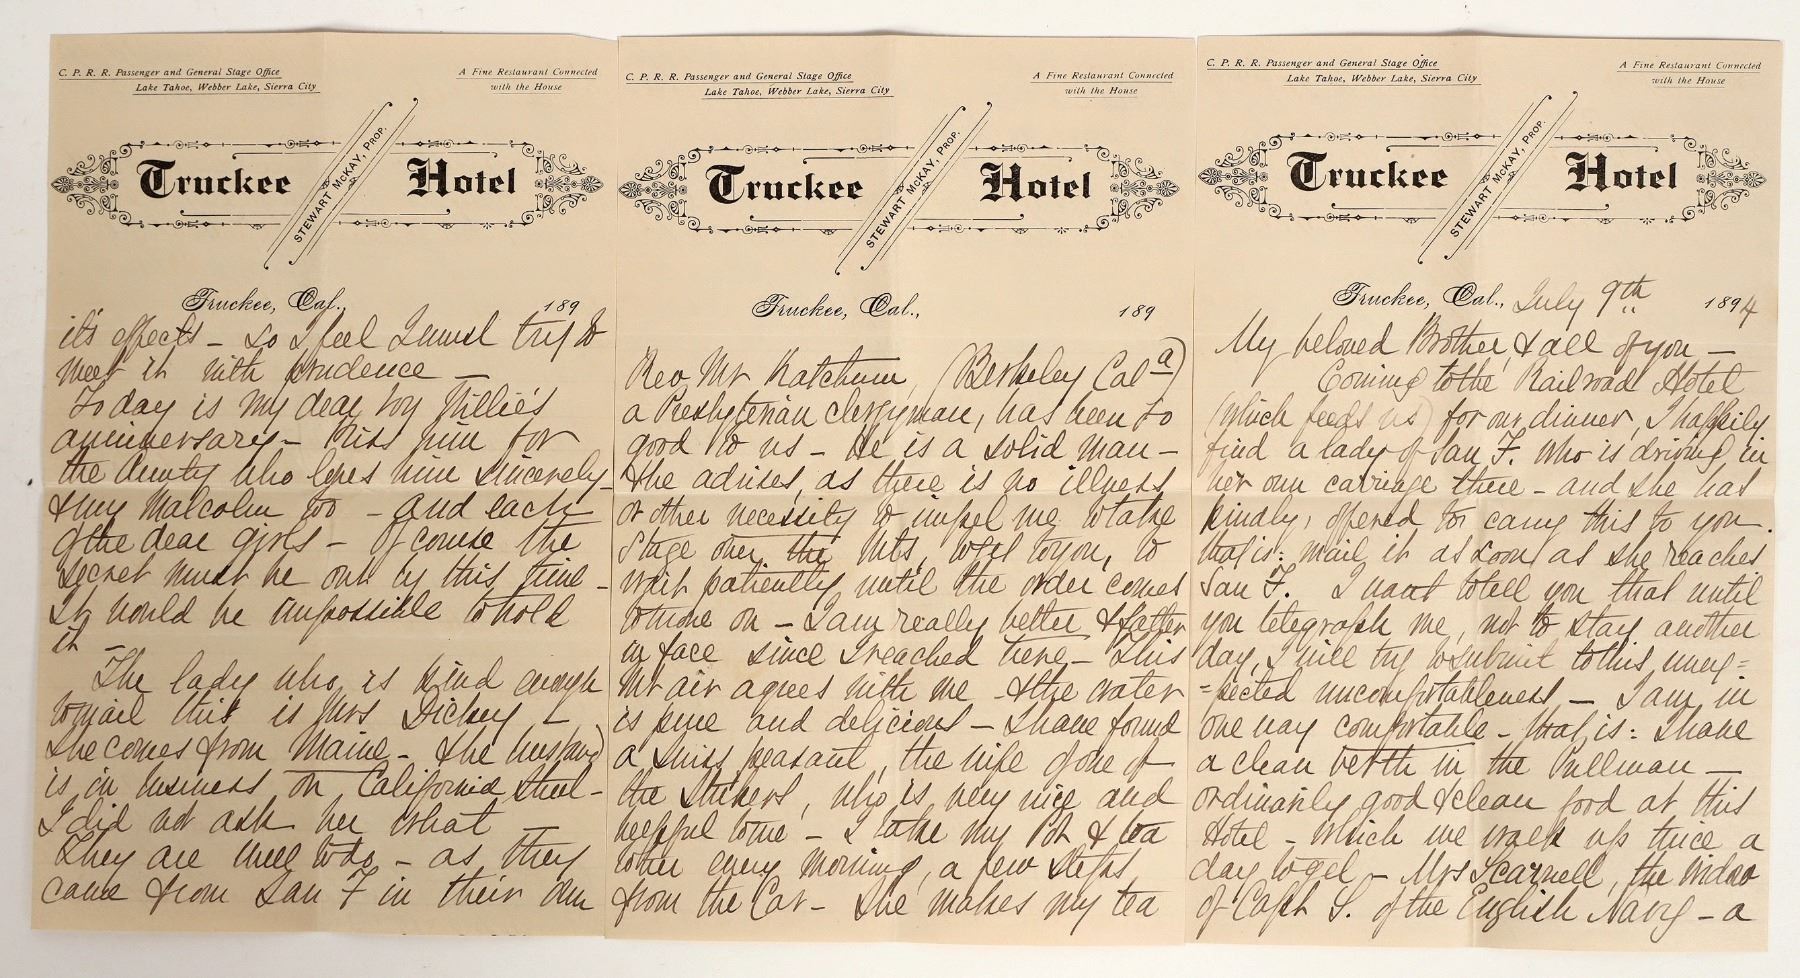 C. P. R. R. Passenger and General Stage Office
Lake Tahoe, Webber Lake, Sierra City
A Fine Restaurant Connected
with the House
Truckee Hotel
STEWART McKAY, PROP.
Truckee, Cal., 189
it's effects – so I feel I must try to
meet it with prudence –
Today is my dear boy Willie's
anniversary – Kiss him for
the Aunty who loves him sincerely –
& my Malcolm too – and each
of the dear girls – Of course the
secret must be out by this time –
It would be impossible to hold
it –
The lady who is kind enough
to mail this is Mrs Dickey –
She comes from Maine – & the husband
is in business on California Street –
I did not ask her what –
They are well to do – as they
came from San F in their own
C. P. R. R. Passenger and General Stage Office
Lake Tahoe, Webber Lake, Sierra City
A Fine Restaurant Connected
with the House
Truckee Hotel
STEWART McKAY, PROP.
Truckee, Cal., 189
Rev. Mr Ketchum, (Berkeley Cala)
a Presbyterian clergyman, has been so
good to us – He is a solid man –
& he advises, as there is no illness
or other necessity to impel me to take
stage over the Mts, to get to you, to
wait patiently until the order comes
to move on – I am really better & fatter
in face since I reached here – This
Mt air agrees with me – & the water
is pure and delicious – I have found
a Swiss peasant, the wife of one of
the Strikers, who is very nice and
helpful to me – I take my Pot & tea
to her every morning, a few steps
from the Car – She makes my tea
C. P. R. R. Passenger and General Stage Office
Lake Tahoe, Webber Lake, Sierra City
A Fine Restaurant Connected
with the House
Truckee Hotel
STEWART McKAY, PROP.
Truckee, Cal., July 9th 1894
My beloved Brother & all of you –
Coming to the Railroad Hotel
(which feeds us) for our dinner, I happily
find a lady of San F. who is driving in
her own carriage there – and she has
kindly, offered to carry this to you.
that is: mail it as soon as she reaches
San F. I want to tell you that until
you telegraph me, not to stay another
day, I will try to submit to this, unex=
=pected uncomfortableness – I am in
one way comfortable – that is: I have
a clean berth in the Pullman –
ordinarily good & clean food at this
Hotel – which we walk up twice a
day to get – Mrs Scarnell, the widow
of Capt S. of the English Navy – a